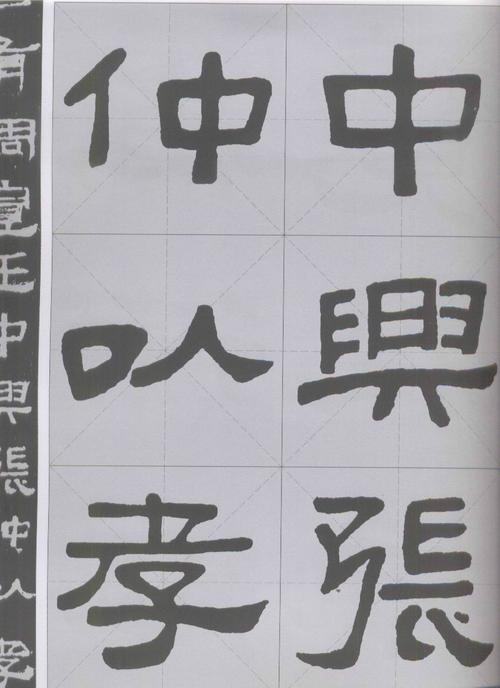 中興張
仲以孝
有周宣王中興張仲以孝